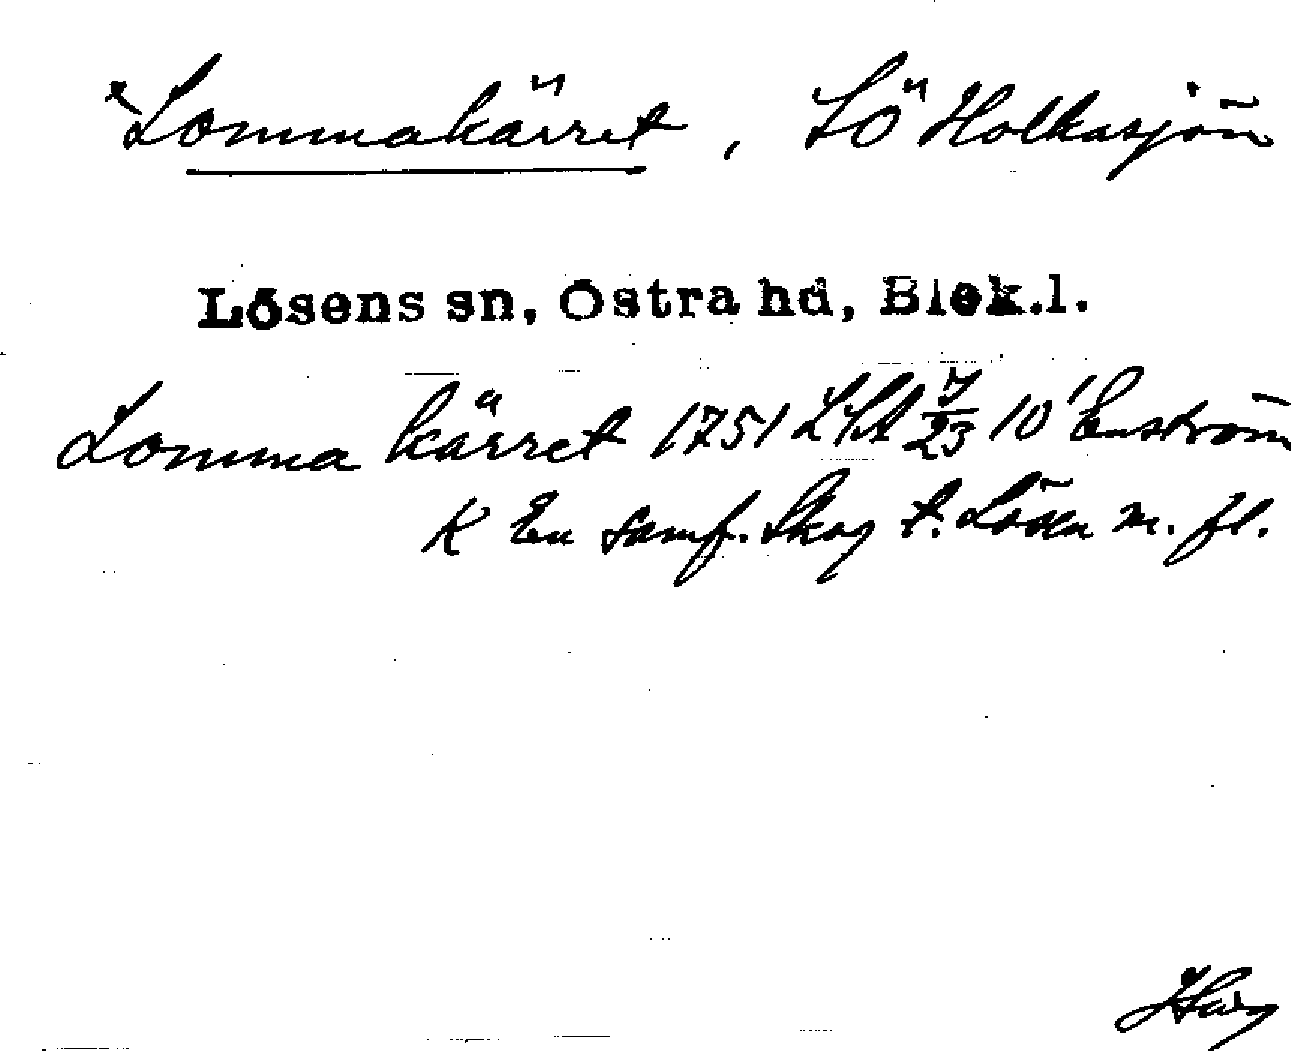 *Lommakärret, SÖ Holkasjön
Lösens sn, Östra hd, Blek.l.
Lomma kärret 1751 LSA 7/23 10' Enström
K En samf. Skog t. Lösen m. fl.